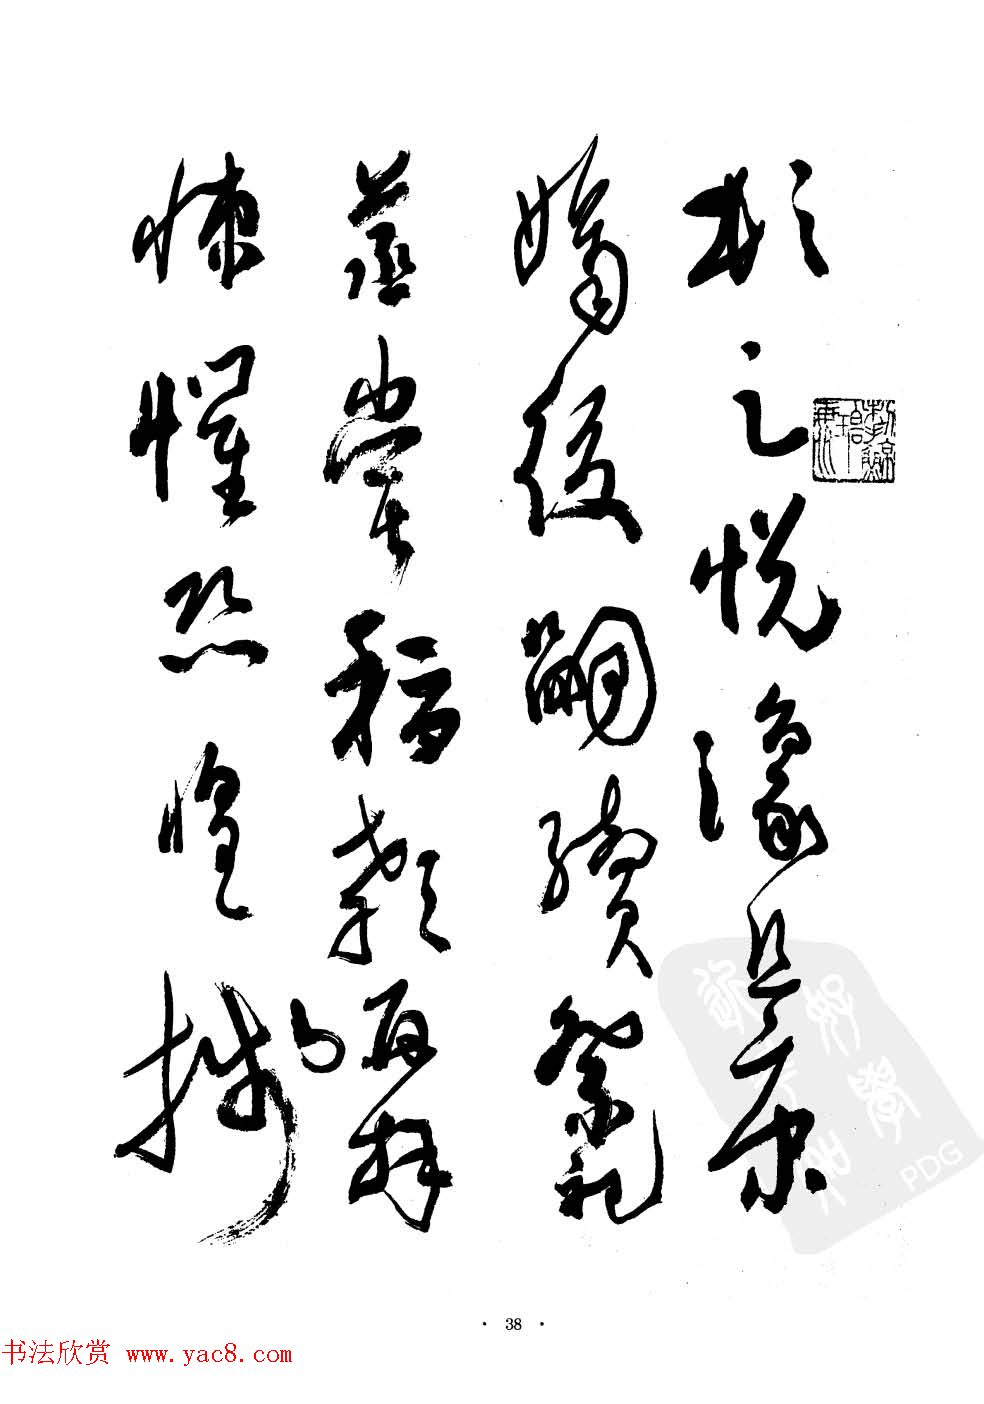 頓足悦豫且康
嫡後嗣續祭祀
蒸嘗稽顙再拜
悚懼恐惶牋
PDG
· 38 ·
书法欣赏 www.yac8.com